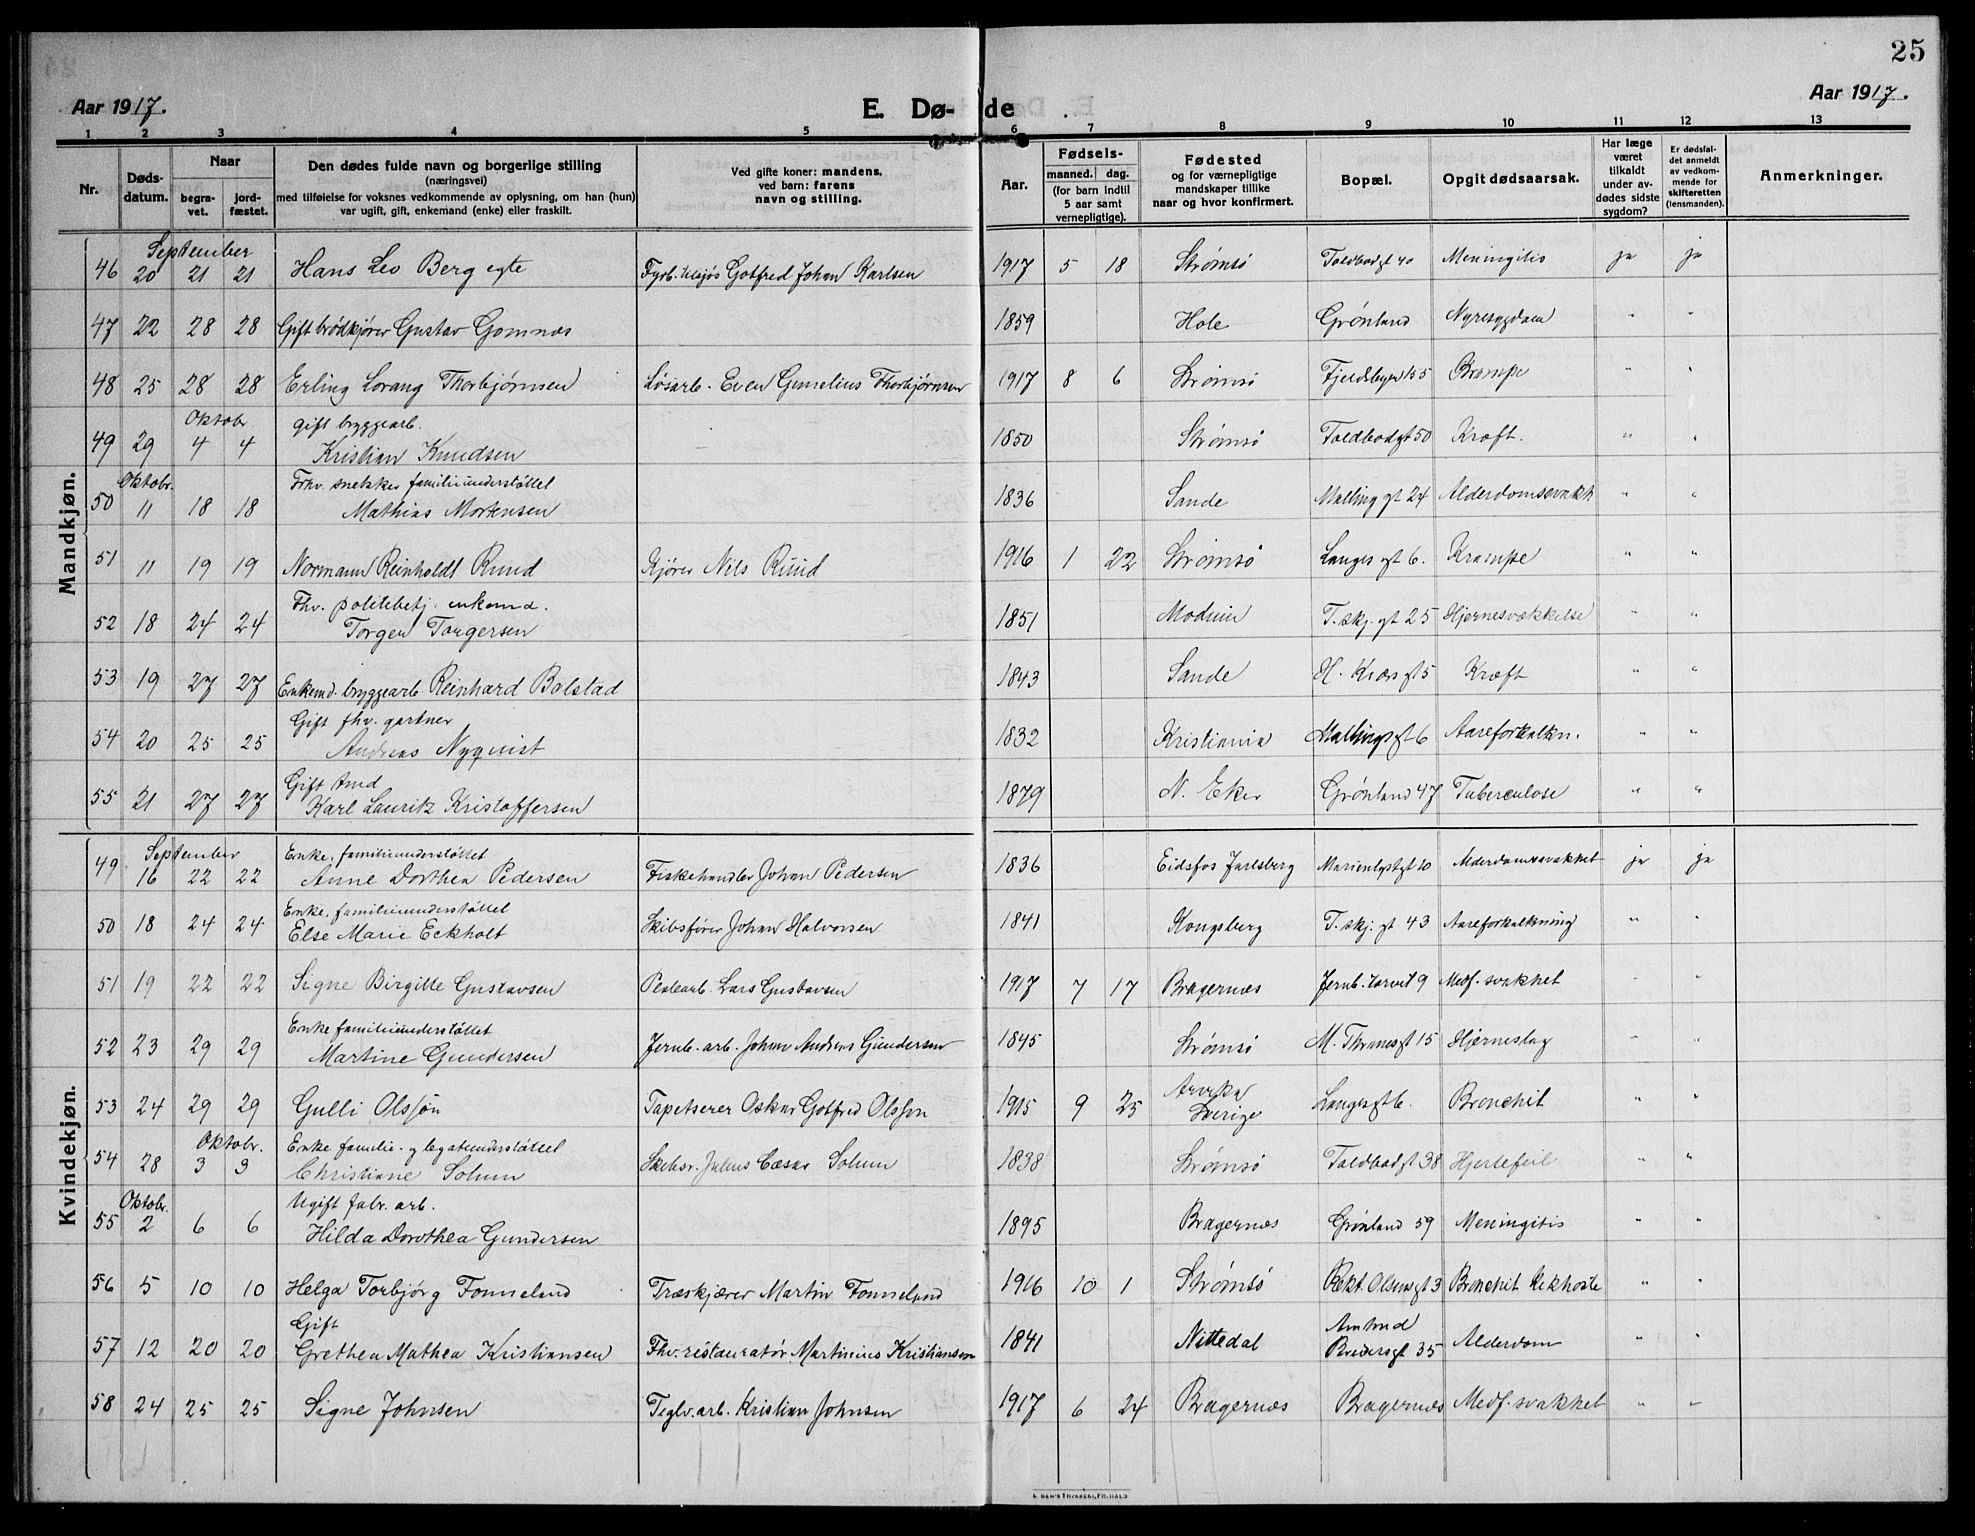 25
Aar 1917. E. Dø- de Aar 1917.
1 2 3 4 5 6 7 8 9 10 11 12 13
Nr. Døds-datum. Naar begra-vet. jord-fæstet. Den dødes fulde navn og borgerlige stilling (næringsvei) med tilføielse for voksnes vedkommende av oplysning, om han (hun) var ugift, gift, enkemand (enke) eller fraskilt. Ved gifte koner: mandens, ved barn: farens navn og stilling. Aar. Fødsels- maaned. dag. (for barn indtil 5 aar samt vernepligtige). Fødested og for værnepligtige mandskaper tillike naar og hvor konfirmert. Bopæl. Opgit dødsaarsak. Har læge været tilkaldt under av-dødes sidste sygdom? Er dødsfal-det anmeldt av vedkom-mende for skifteretten (lensmanden). Anmerkninger.
Mandkjøn.
September
46 20 21 21 Hans Leo Berg egte Fyrb. Gotfred Johan Karlsen 1917 5 18 Strømsø Toldbodgt 40 Meningitis ja ja
47 22 28 28 Gift brödkjører Gustav Gomnæs 1859 Hole Grønland Nyresygdom " "
48 25 28 28 Erling Lorang Thorbjørnsen Løsarb. Even Gunelius Thorbjørnsen 1917 8 6 Strømsø Fjeldsbyen 155 Krampe " "
Oktobr. gift bryggearb.
49 29 4 4 Kristian Knudsen 1850 Strømsø Toldbodgt 50 Kræft. " "
Oktobr. Fhv. snekker familieunderstøttet
50 11 18 18 Mathias Mortensen 1836 Sande Malling gt 24 Alderdomssvakh " "
51 11 19 19 Normann Reinholdt Ruud Kjører Nils Ruud 1916 1 22 Strømsø Langes gt 6. Krampe " "
Fhv. politibetj. enkemd.
52 18 24 24 Torger Torgersen 1851 Modum T. skj. gt 25 Hjernesvækkelse " "
53 19 27 27 Enkemd. bryggearb Reinhard Bolstad 1843 Sande H. Kiærs gt 5 Kræft " "
Gift fhv. gartner
54 20 25 25 Andreas Nyquist 1832 Kristiania Mallingsgt 6 Aareforkalkn. " "
Gift
55 21 27 27 Karl Lauritz Kristoffersen 1879 N. Eker Grønland 47 Tuberculose " "
Kvindekjøn.
September Enke, familieunderstøttet
49 16 22 22 Anne Dorthea Pedersen Fiskehandler Johan Pedersen 1836 Eidsfos Jarlsberg Marienlystgt 10 Alderdomssvakhet ja ja
Enke, familieunderstøttet
50 18 24 24 Else Marie Eckholt Skibsfører Johan Halvorsen 1841 Kongsberg T. skj. gt 43 Aareforkalkning " "
51 19 22 22 Signe Birgitte Gustavsen Lars Gustavsen 1917 7 17 Bragernæs Jernb. torvet 9 Medf. svakhet " "
Enke familieunderstøttet
52 23 29 29 Martine Gundersen Jernb. arb. Johan Andreas Gundersen 1845 Strømsø M. Thranesgt 15 Hjerneslag " "
53 24 29 29 Gulli Olsson Tapetserer Oskar Gotfred Olsson 1915 9 25 Arvika Sverige Langesgt 6. Bronchit " "
Oktobr. Enke familie- og legatunderstøttet
54 28 3 3 Christiane Solum Skibsr. Julius Cæsar Solum 1838 Strømsø Toldbodgt 38 Hjertefeil " "
Oktobr. Ugift fabr. arb.
55 2 6 6 Hilda Dorothea Gundersen 1895 Bragernæs Grønland 59 Meningitis " "
56 5 10 10 Helga Torbjørg Fonneland Træskjærer Martin Fonneland 1916 10 1 Strømsø Rekt. Olsensgt 3 Bronchit Kikhoste " "
Gift
57 12 20 20 Grethea Mathea Kristiansen Fhv. restauratør Martinius Kristiansen 1841 Nittedal Amund Bredersgt 35 Alderdom " "
58 24 25 25 Signe Johnsen Teglv. arb. Kristian Johnsen 1917 6 24 Bragernæs Bragernæs Medf. svakhet " "